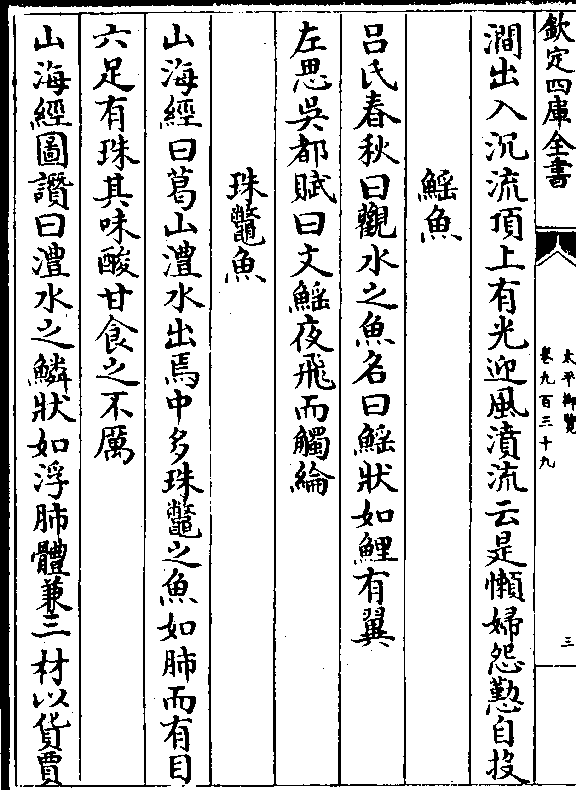 欽定四庫全書
太平御覽
卷九百三十九
三
澗出入沉流頂上有光迎風濆流云是懶婦怨懃自投
鰩魚
呂氏春秋曰觀水之魚名曰鰩狀如鯉有翼
左思吳都賦曰文鰩夜飛而觸綸
珠鼈魚
山海經曰葛山澧水出焉中多珠鼈之魚如肺而有目
六足有珠其味酸甘食之不厲
山海經圖讚曰澧水之鱗狀如浮肺體兼三材以貨賈